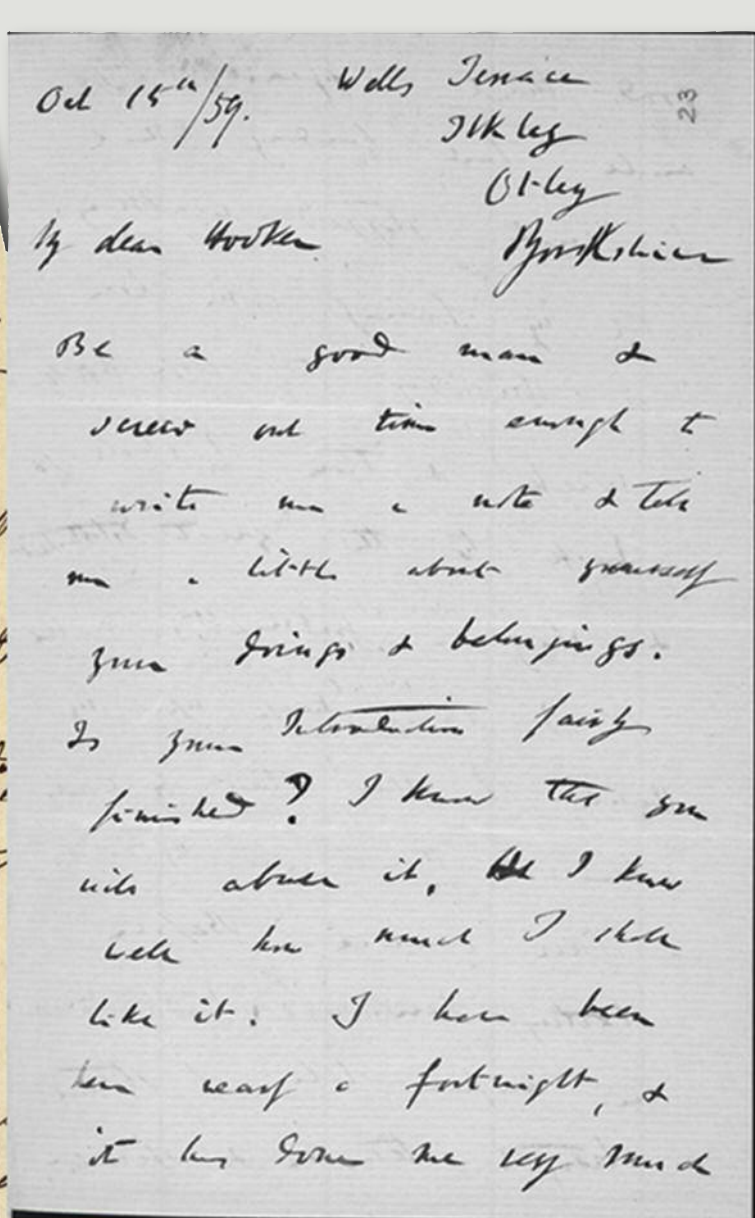 Oct 15th/59.
Wells Terrace
Ilkley
Otley
Yorkshire
23
My dear Hooker
Be a good man &
screw out time enough to
write me a note & tell
me a little about yourself
your doings & belongings.
Is your Introduction fairly
finished? I know that you
will abuse it, & I know
well how much I shall
like it. I have been
here nearly a fortnight, &
it has done me very much